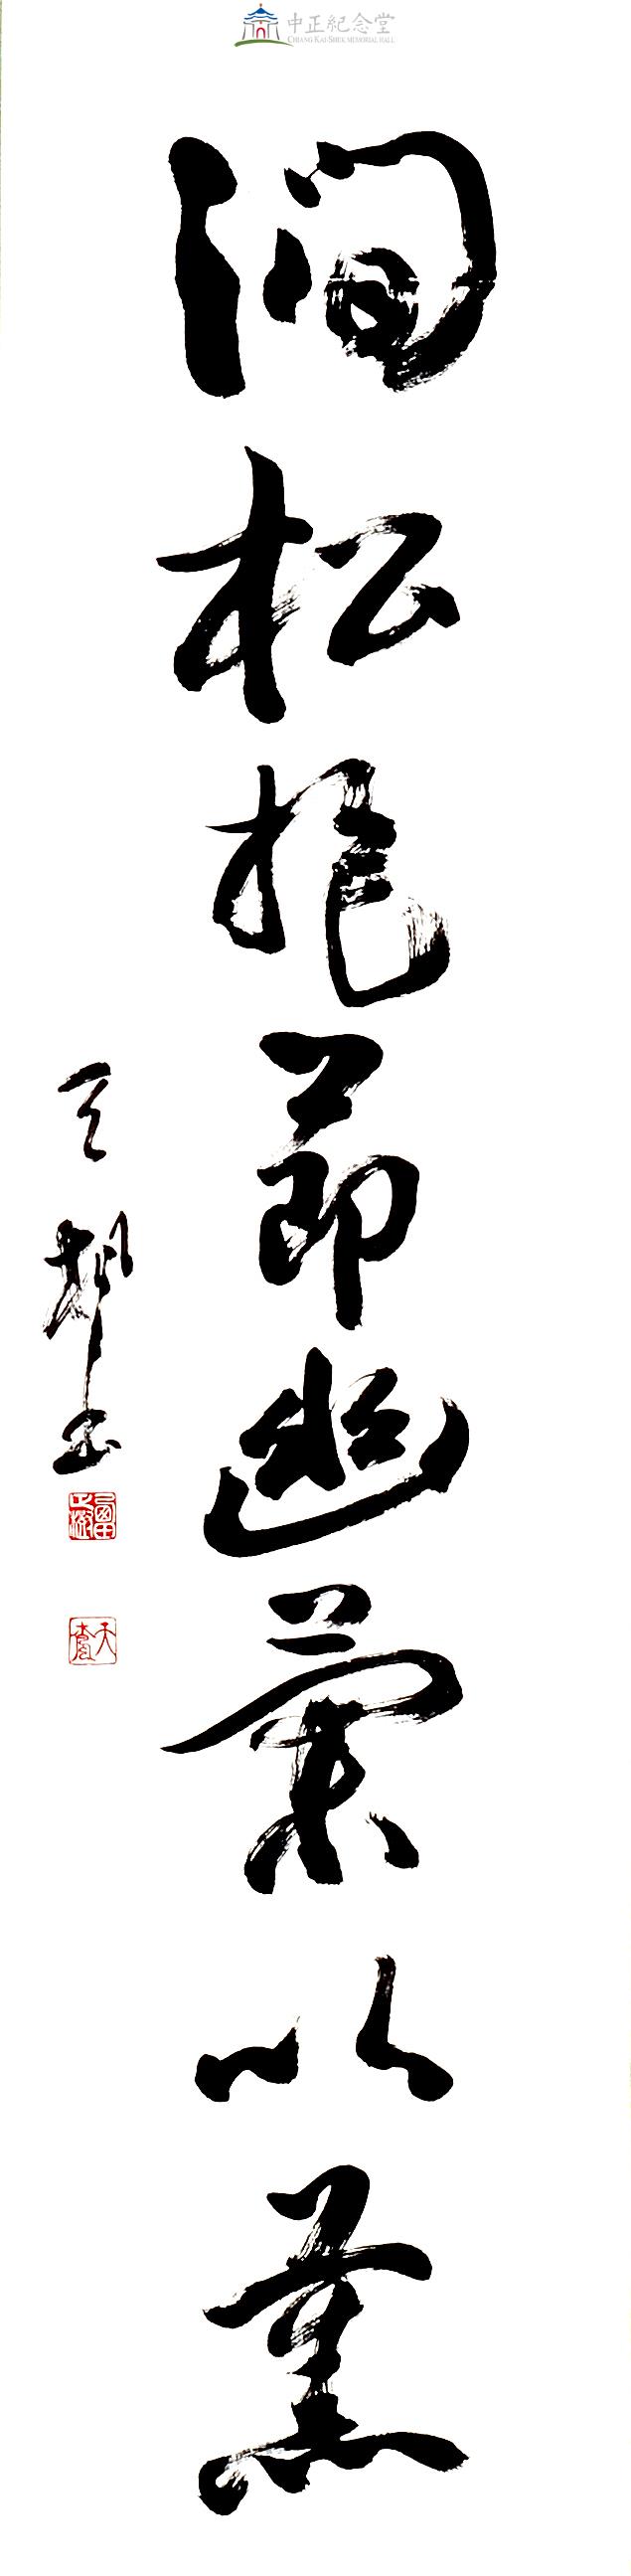 中正紀念堂
CHIANG KAI-SHEK MEMORIAL HALL
澗松抱節幽蘭以薰